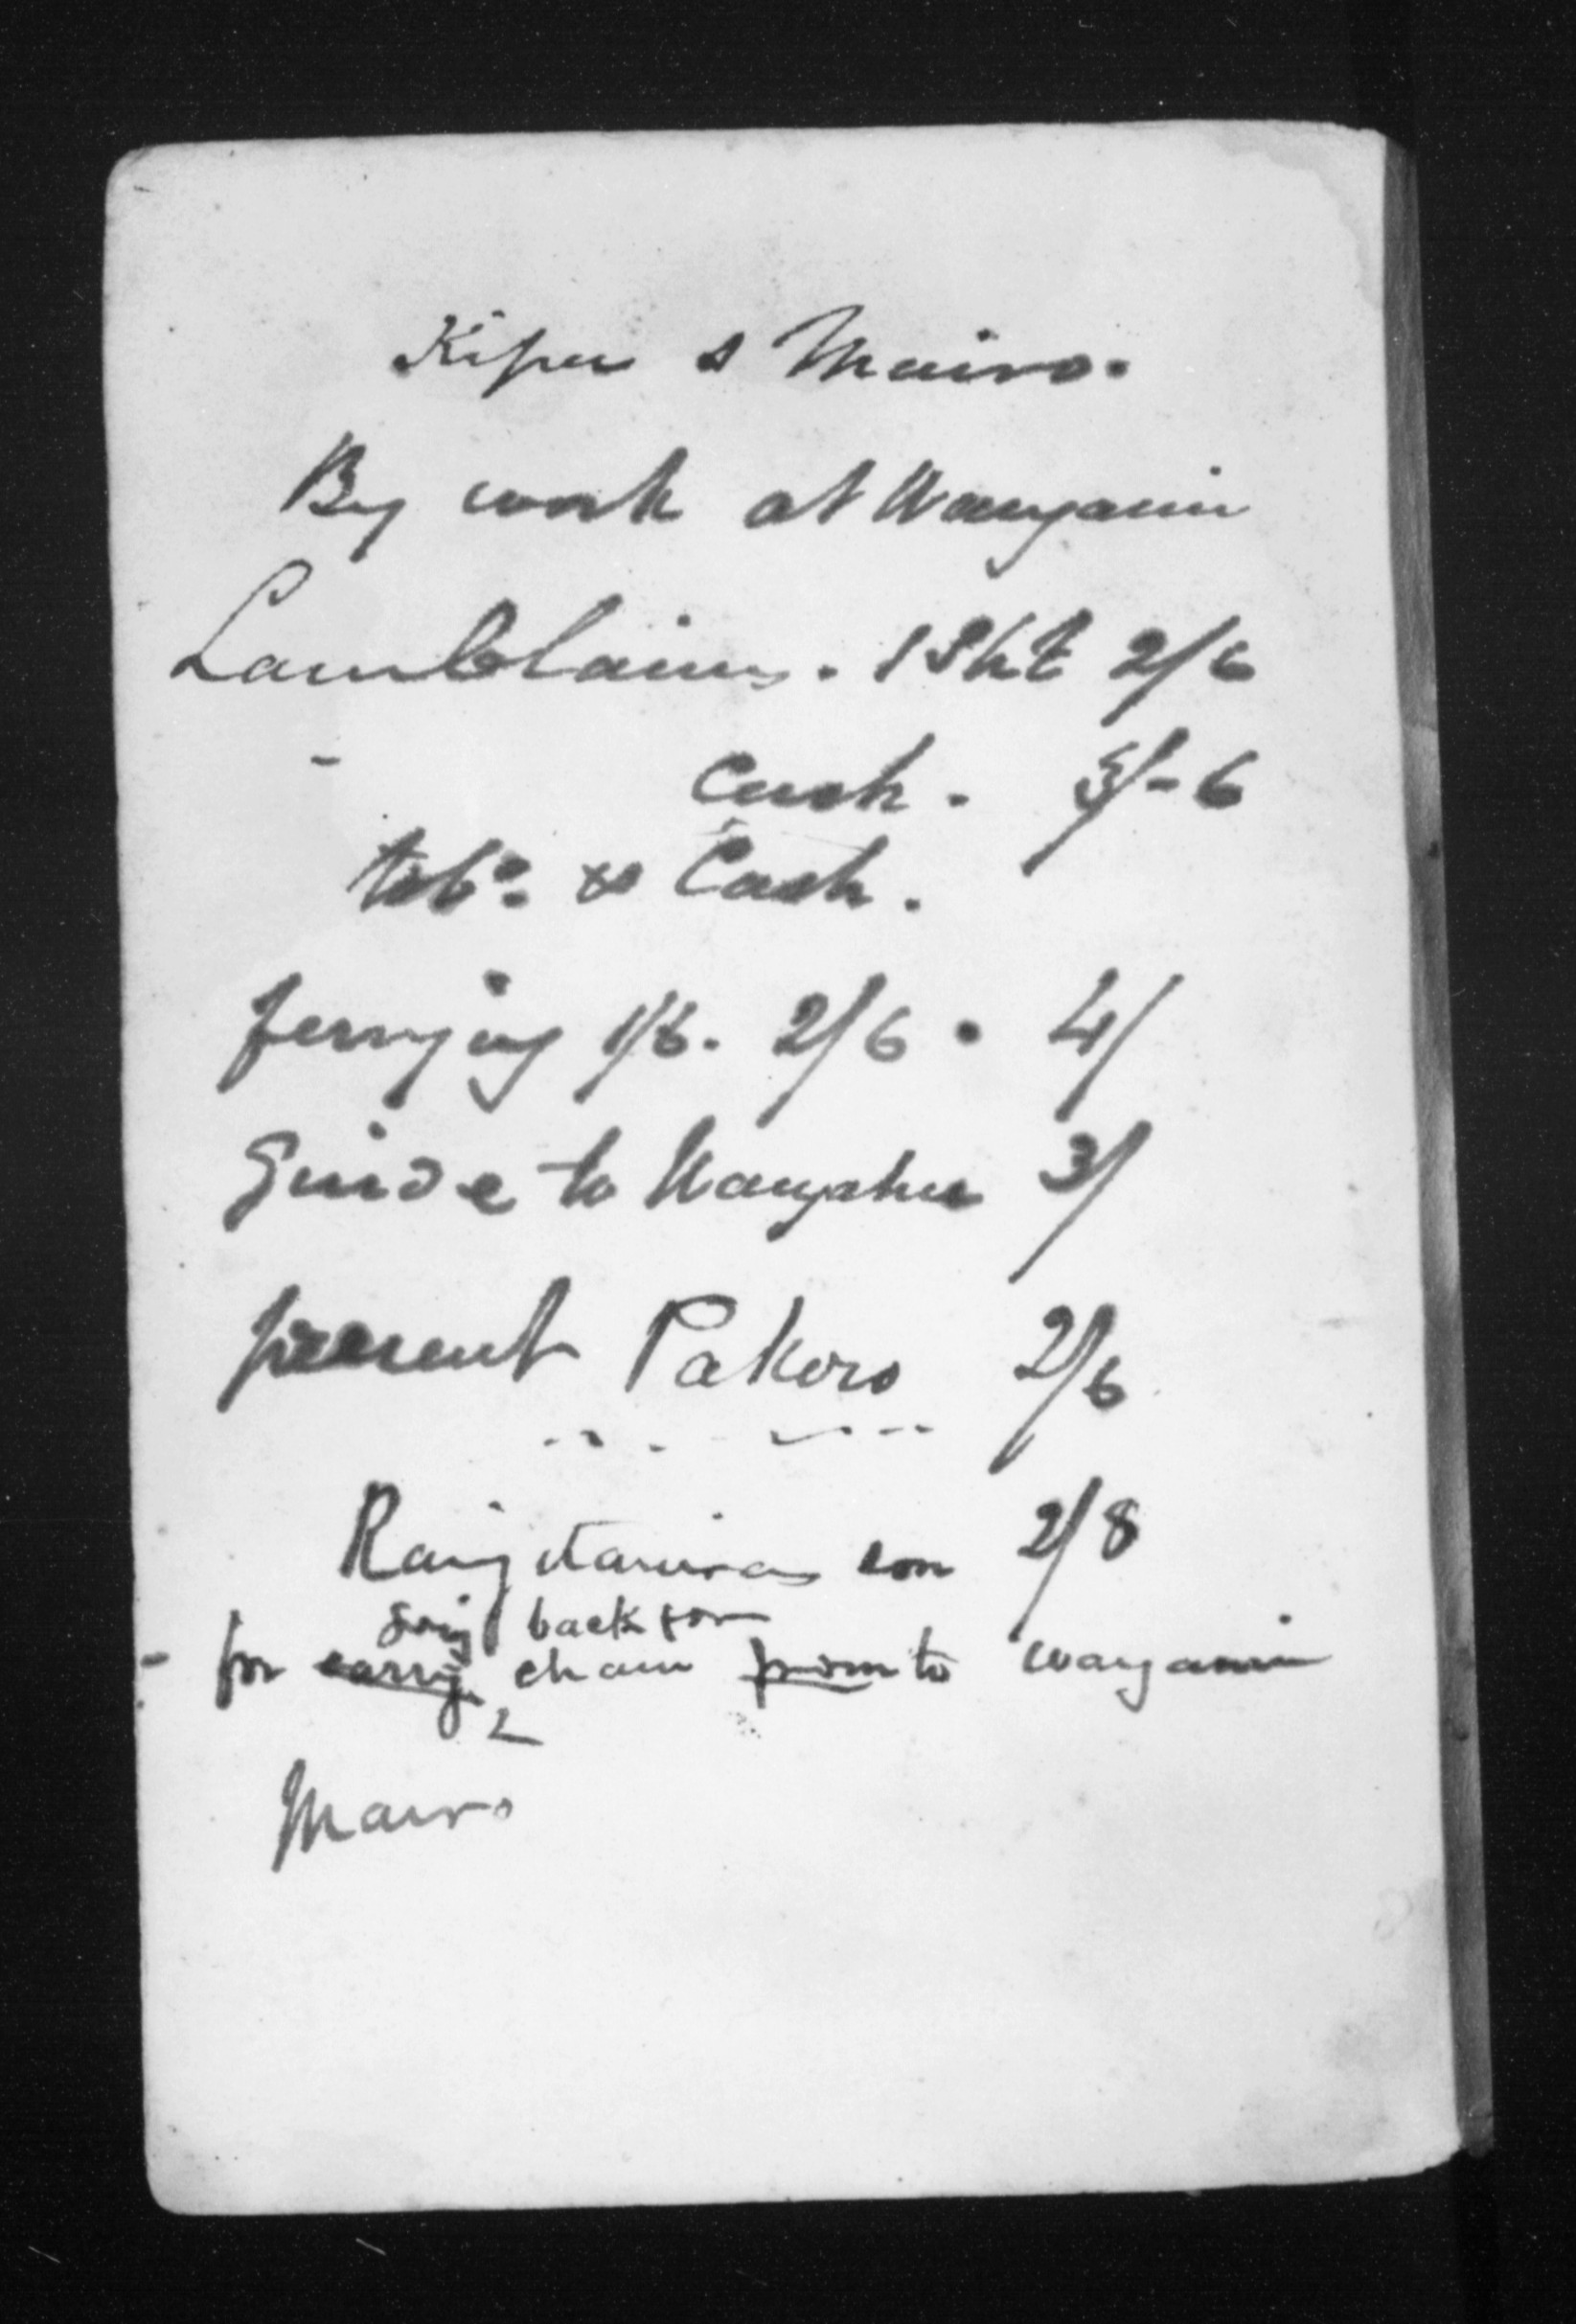 Kipu & Mairo.
By work at Wanganui
Land Claims. 1 Sht 2/6
Cash. 3/-6
tobo. & Cash.
ferrying 1/6. 2/6. 4/
Guide to 3/
present Pakoro 2/6
son 2/8
going back for
for carryg chain from to wanganui
Mairo